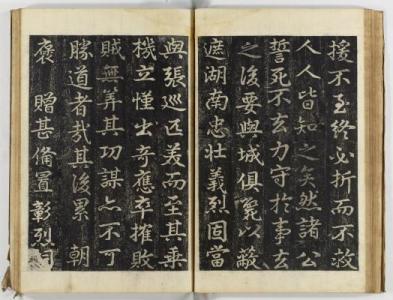 援不至終必折而不救
人人皆知之矣然諸公
誓死不去力守於事去
之後要與城俱斃以蔽
遮湖南忠壯義烈固當
與張巡匹美而至其乗
機立慬出奇應卒摧敗
賊無筭其功謀亦不可
勝道者哉其後累 朝
褒 贈甚備置彰烈祠